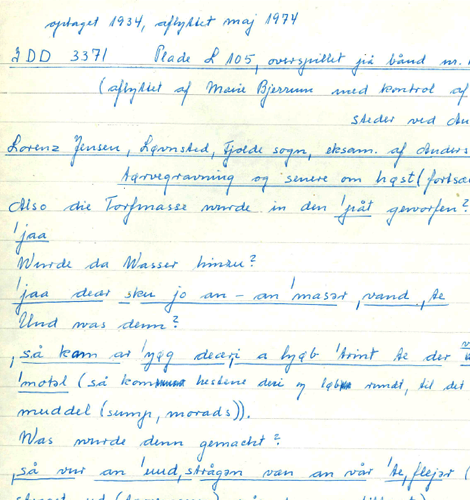 optaget 1934, aflyttet maj 1974
IDD 3371 Plade L 105, overspillet på bånd nr.
(aflyttet af Marie Bjerrum med kontrol af
steder ved An
Lorenz Jensen, Lavnsted, Fjolde sogn, eksam. af Anders
Tørvegravning og senere om høst (fortsæ
Also die Torfmasse wurde in den 'påt geworfen?
'jaa
Wurde da Wasser hinzu?
'jaa dear sku jo an - an 'masər, vand, te
Und was denn?
, så kam ar 'ygg deari a lyəb 'trint te der
'motəl (så kom hestene deri og løb rundt, til det
muddel (sump, morads)).
Was wurde denn gemacht?
, så vur an 'uud, strågən van an vår 'te, flejər (